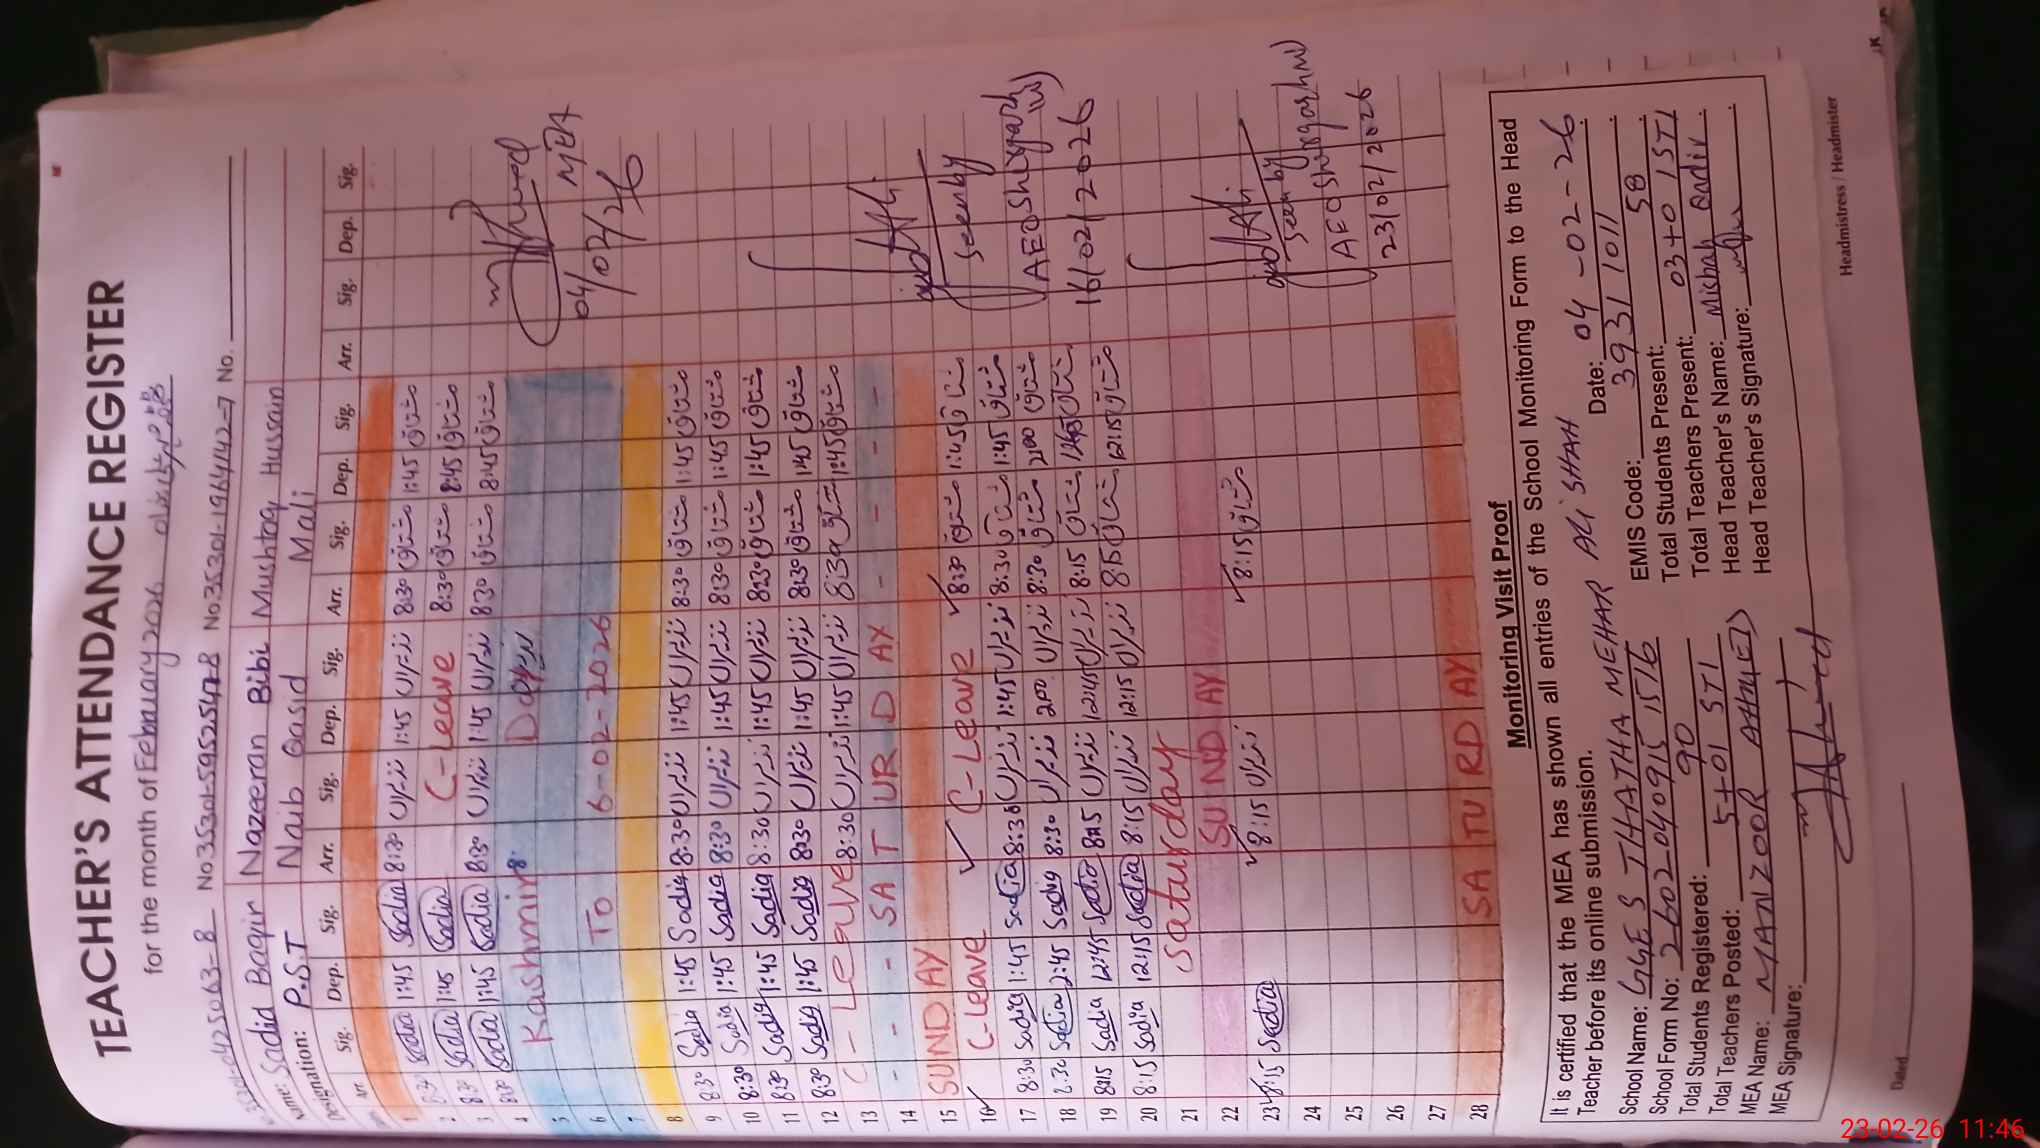 TEACHER'S ATTENDANCE REGISTER
for the month of February 2026
No 35301-5952547-8 No 35301-1964142-7 No.
Name: Sadia Baqir Nazeeran Bibi Mushtaq Hussain
Designation: P.S.T Naib Qasid Mali
Arr. Sig. Dep. Sig. Arr. Sig. Dep. Sig. Arr. Sig. Dep. Sig. Arr. Sig. Dep. Sig.
1
2 8:30 Sadia 1:45 Sadia 8:30 نذیراں 1:45 نذیراں 8:30 مشتاق 1:45 مشتاق
3 8:30 Sadia 1:45 Sadia C-Leave 8:30 مشتاق 8:45 مشتاق
4 8:30 Sadia 1:45 Sadia 8:30 نذیراں 1:45 نذیراں 8:30 مشتاق 8:45 مشتاق
MEA
04/02/26
5 Kashmir Day
6 To 6-02-2026
7
8
9 8:30 Sadia 1:45 Sadia 8:30 نذیراں 1:45 نذیراں 8:30 مشتاق 1:45 مشتاق
10 8:30 Sadia 1:45 Sadia 8:30 نذیراں 1:45 نذیراں 8:30 مشتاق 1:45 مشتاق
11 8:30 Sadia 1:45 Sadia 8:30 نذیراں 1:45 نذیراں 8:30 مشتاق 1:45 مشتاق
12 8:30 Sadia 1:45 Sadia 8:30 نذیراں 1:45 نذیراں 8:30 مشتاق 1:45 مشتاق
13 C-Leave 8:30 نذیراں 1:45 نذیراں 8:30 مشتاق 1:45 مشتاق
14 - - - SAT UR D AY - - - -
15 SUND AY
16 C-Leave C-Leave 8:30 مشتاق 1:45 مشتاق
Seen by
AEO Shergarh (W)
16/02/2026
17 8:30 Sadia 1:45 Sadia 8:30 نذیراں 1:45 نذیراں 8:30 مشتاق 1:45 مشتاق
18 8:30 Sadia 2:45 Sadia 8:30 نذیراں 2:00 نذیراں 8:30 مشتاق 2:00 مشتاق
19 8:15 Sadia 12:45 Sadia 8:15 نذیراں 12:45 نذیراں 8:15 مشتاق 12:45 مشتاق
20 8:15 Sadia 12:15 Sadia 8:15 نذیراں 12:15 نذیراں 8:15 مشتاق 12:15 مشتاق
21 Saturday
22 SU ND AY
23 8:15 Sadia 8:15 نذیراں 8:15 مشتاق
Seen by
AEO Shergarh (W)
23/02/2026
24
25
26
27
28 SA TU RD AY
Monitoring Visit Proof
It is certified that the MEA has shown all entries of the School Monitoring Form to the Head
Teacher before its online submission.
School Name: GGE S THATHA MEHAR ALI SHAH Date: 04-02-26
School Form No: 260204091515 16 EMIS Code: 39311011
Total Students Registered: 90 Total Students Present: 58
Total Teachers Posted: 5+01 STI Total Teachers Present: 03+01STI
MEA Name: MANZOOR AHMED Head Teacher's Name: Misbah Qadir
MEA Signature: Head Teacher's Signature:
Dated Headmistress / Headmister
23-02-26 11:46